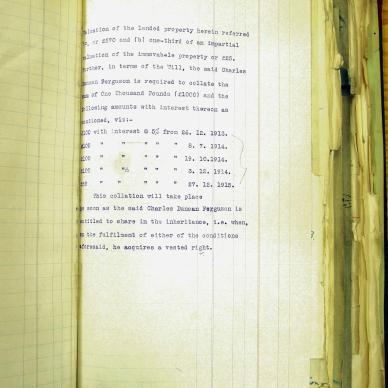 valuation of the landed property herein referred
to, or £570 and (b) one-third of an impartial
valuation of the immovable property or £25.
Further, in terms of the Will, the said Charles
Duncan Ferguson is required to collate the
sum of One Thousand Pounds (£1000) and the
following amounts with interest thereon as
mentioned, viz:-
£100 with interest @ 5% from 24. 12. 1913.
£100 " " " " " 8. 7. 1914.
£100 " " " " " 19. 10. 1914.
£100 " " " " " 3. 12. 1914.
" " " " " 27. 12. 1915.
This collation will take place
as soon as the said Charles Duncan Ferguson is
entitled to share in the inheritance, i.e. when,
on the fulfilment of either of the conditions
aforesaid, he acquires a vested right.